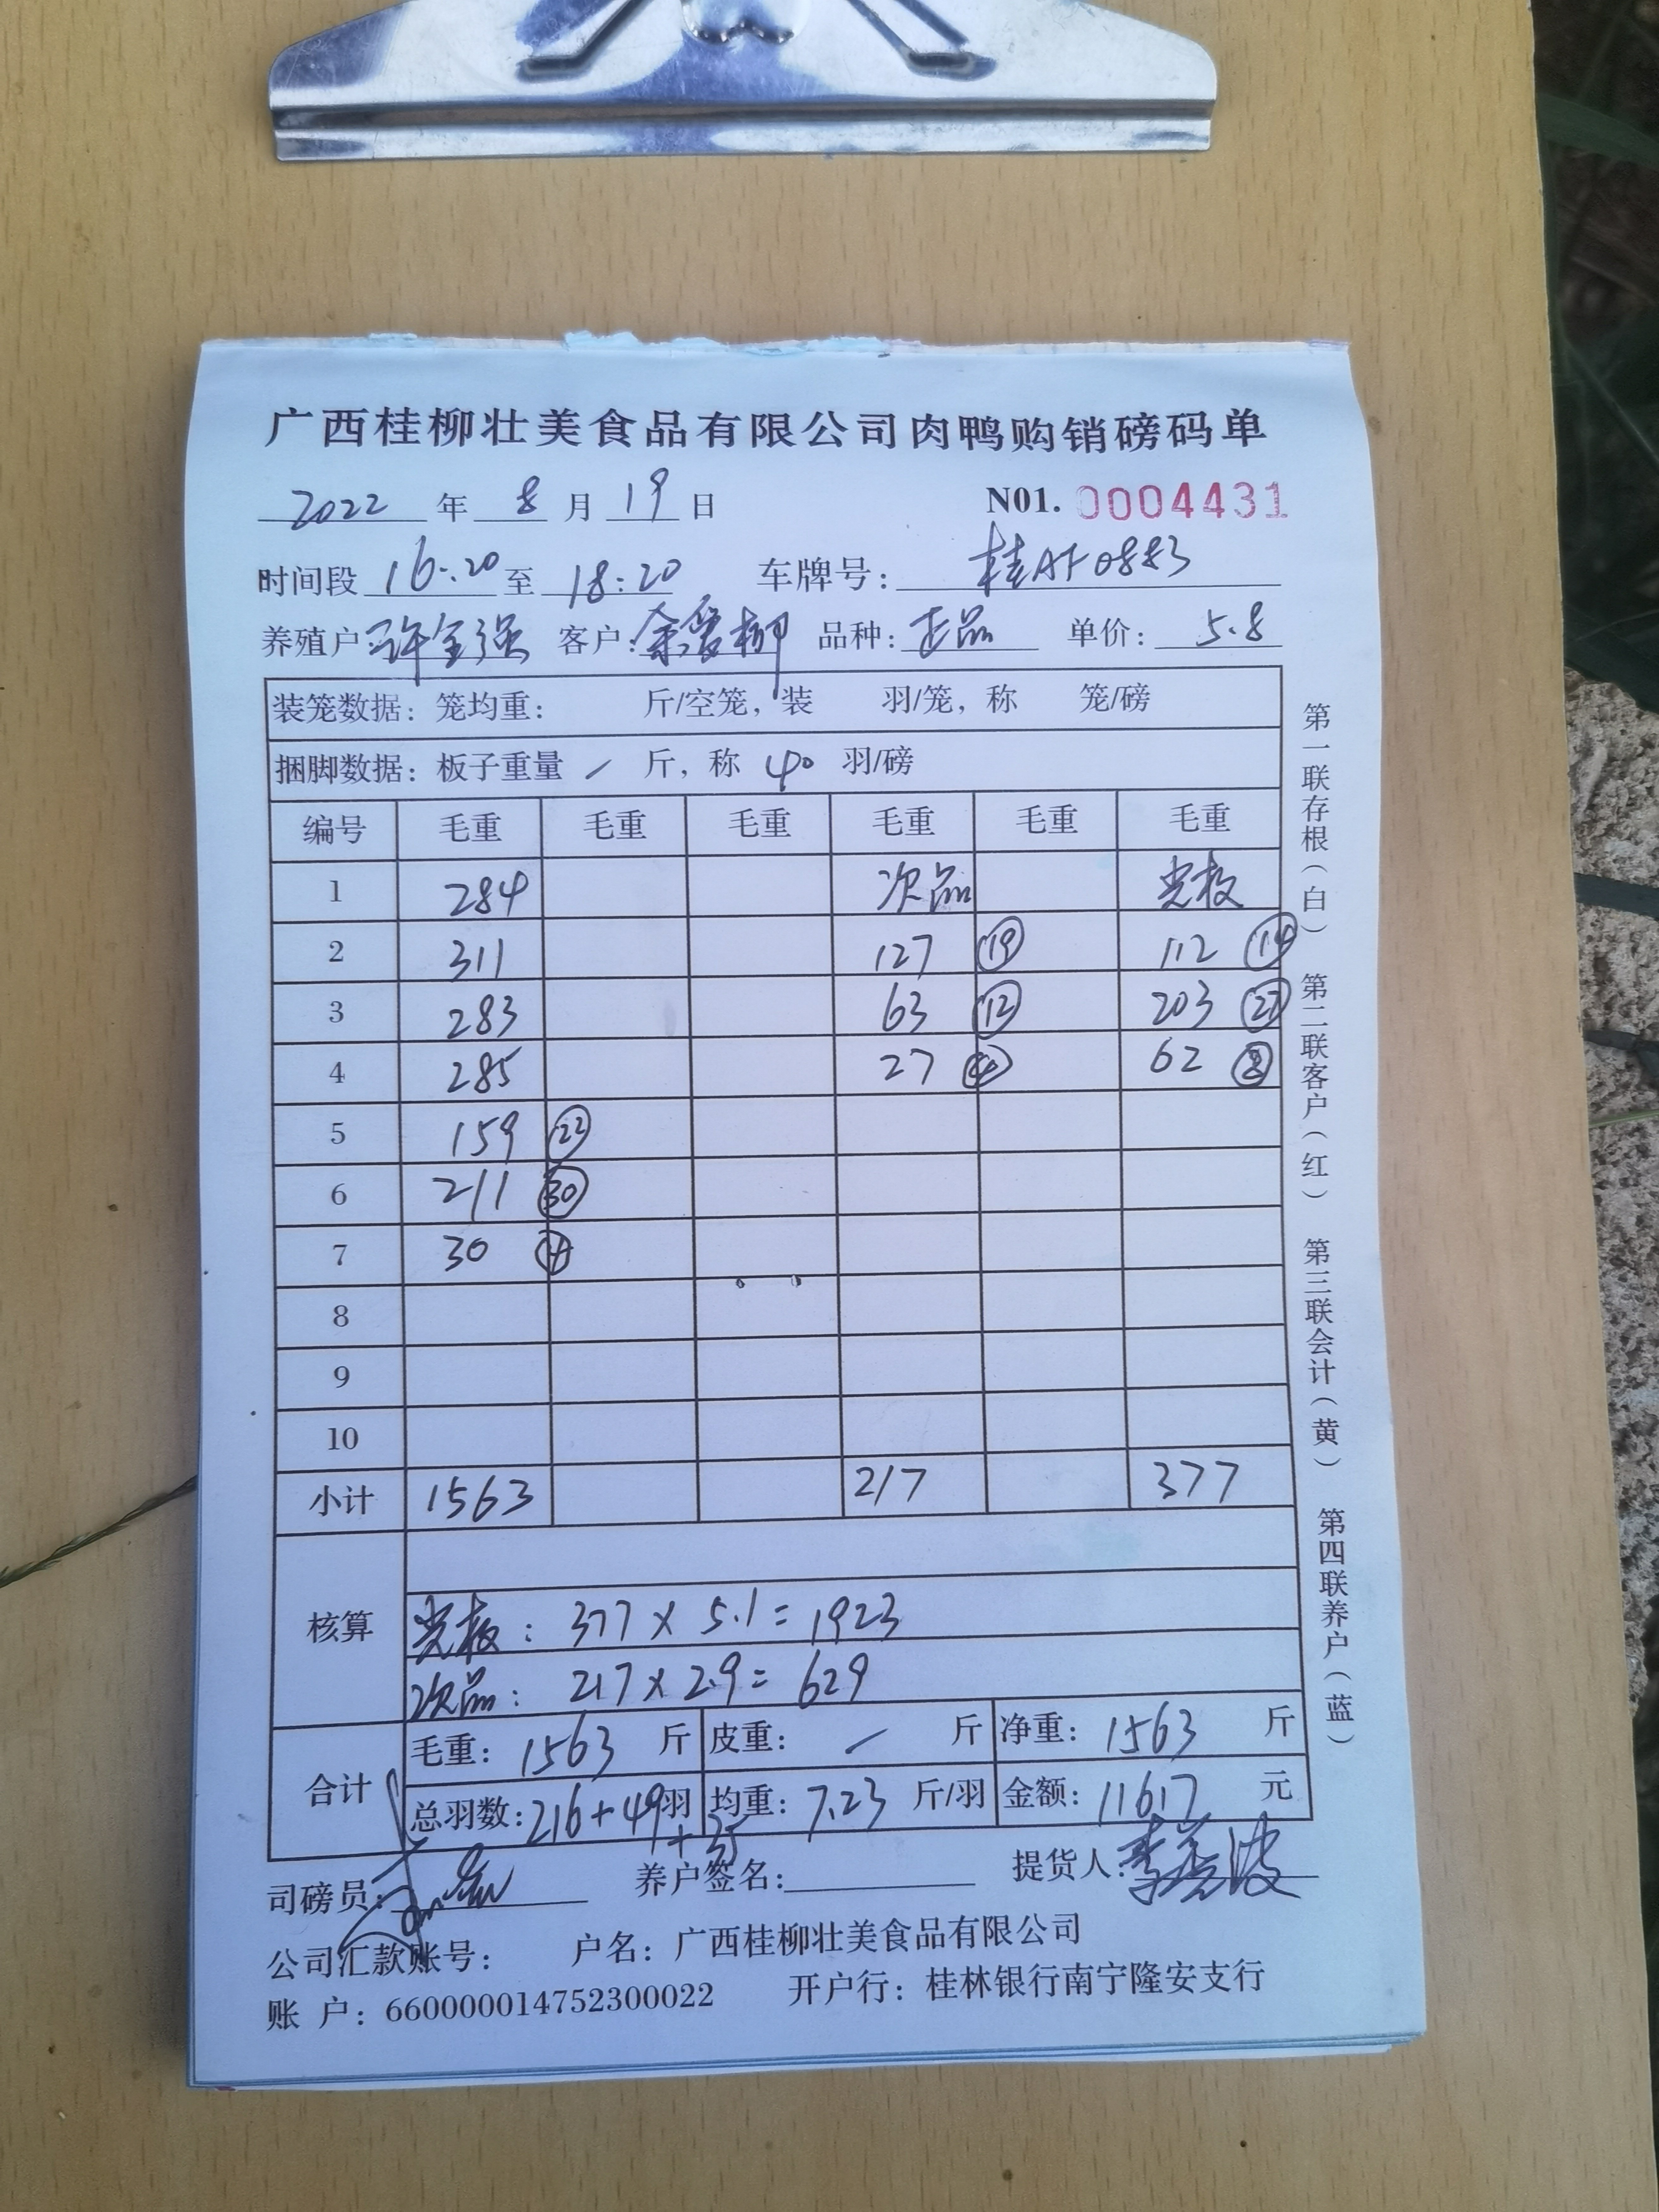 广西桂柳壮美食品有限公司肉鸭购销磅码单
2022 年 8 月 19 日 N01. 0004431
时间段 16:20 至 18:20 车牌号: 桂AF0883
养殖户 许全强 客户: 余爱柳 品种: 正品 单价: 5.8
装笼数据: 笼均重: 斤/空笼, 装 羽/笼, 称 笼/磅
捆脚数据: 板子重量 / 斤, 称 40 羽/磅
编号 毛重 毛重 毛重 毛重 毛重 毛重
1 284 次品 光板
2 311 127 19 112 14
3 283 63 12 203 27
4 285 27 62 8
5 159 22
6 211 30
7 30 4
8
9
10
小计 1563 217 377
核算
光板: 377 x 5.1 = 1923
次品: 217 x 2.9 = 629
合计 毛重: 1563 斤 皮重: / 斤 净重: 1563 斤
总羽数: 216+49羽 均重: 7.23 斤/羽 金额: 11617 元
+35
司磅员: 养户签名: 提货人: 李
公司汇款账号: 户名: 广西桂柳壮美食品有限公司
账 户: 660000014752300022 开户行: 桂林银行南宁隆安支行
第一联存根(白) 第二联客户(红) 第三联会计(黄) 第四联养户(蓝)